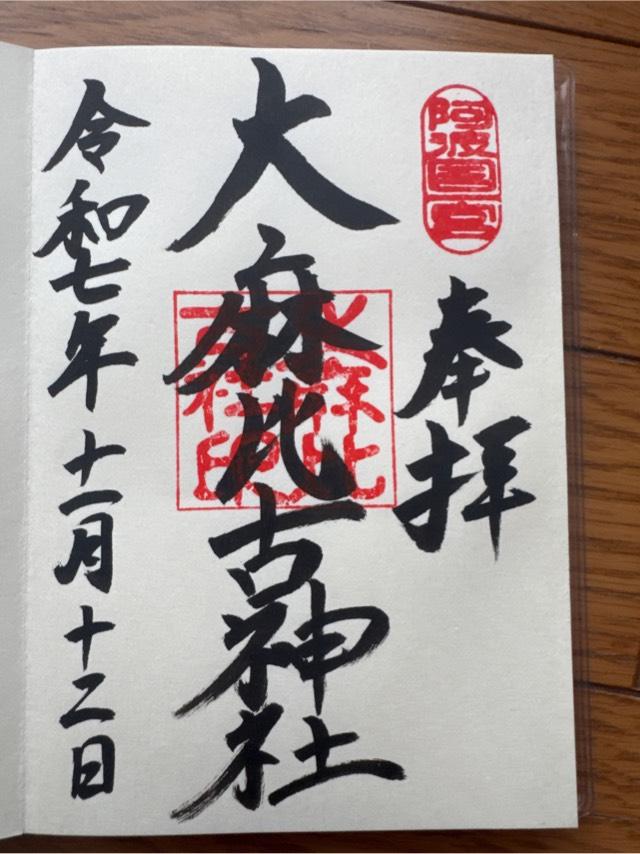 阿波国一宮
奉拝
大麻比古神社
令和七年十一月十二日